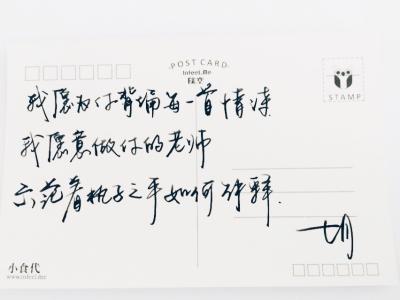 POST CARD
Infeel.Me
STAMP
我愿为你背诵每一首情诗
我愿意做你的老师
示范着执子之手如何解释.
小食代
www.infeel.me